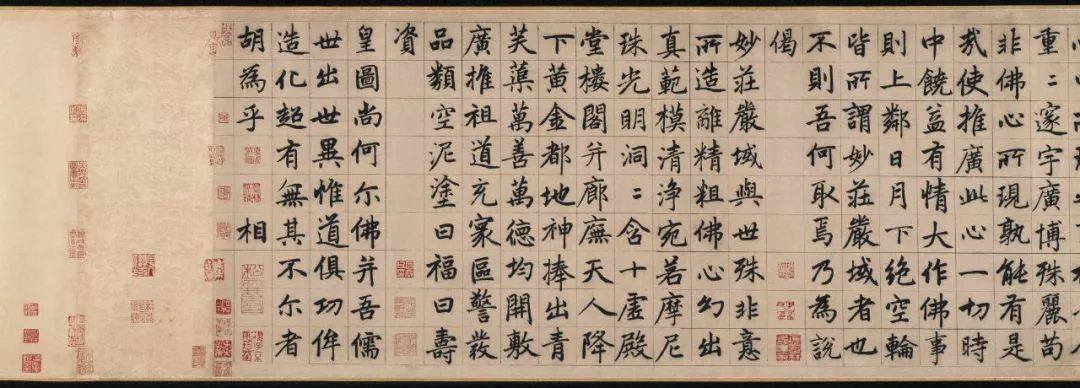 重〻邃宇廣博殊麗苟
非佛心所現孰能有是
哉使推廣此心一切時
中饒益有情大作佛事
則上鄰日月下絕空輪
皆所謂妙莊嚴域者也
不則吾何取焉乃為說
偈
妙莊嚴域與世殊非意
所造離精粗佛心幻出
真範模清淨宛若摩尼
珠光明洞〻含十虛殿
堂樓閣并廊廡天人降
下黃金都地神捧出青
芙蕖萬善萬德均開敷
廣推祖道充寰區警發
品類空泥塗曰福曰壽
資
皇圖尚何尔佛并吾儒
世出世異惟道俱功侔
造化超有無其不尔者
胡為乎相